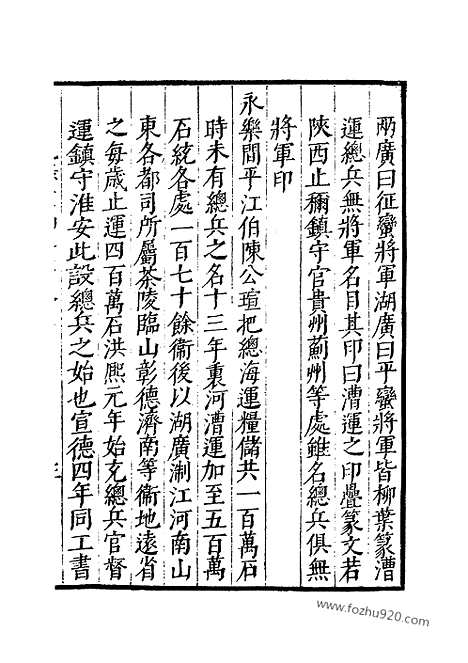 兩廣曰征蠻將軍湖廣曰平蠻將軍皆柳葉篆漕
運總兵無將軍名目其印曰漕運之印疊篆文若
陝西止稱鎮守官貴州薊州等處雖名總兵俱無
將軍印
永樂間平江伯陳公瑄把總海運糧儲共一百萬石
時未有總兵之名十三年裏河漕運加至五百萬
石統各處一百七十餘衞後以湖廣浙江河南山
東各都司所屬茶陵臨山彰德濟南等衞地遠省
之每歲止運四百萬石洪熙元年始充總兵官督
運鎮守淮安此設總兵之始也宣德四年同工書
www.fozhu920.com